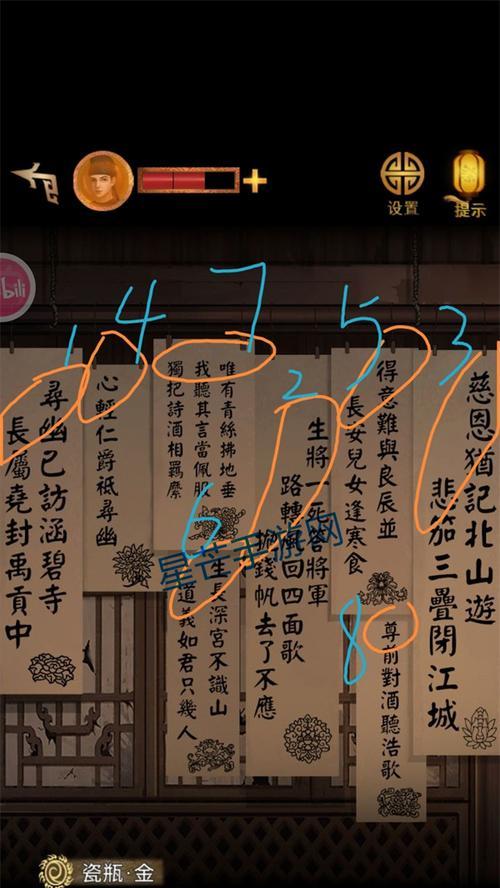 设置
提示
bili
1
4
7
2
5
3
慈恩猶記北山遊
悲笳三疊閉江城
得意難與良辰並
長安兒女逢寒食
8
尊前對酒聽浩歌
生將一死答將軍
路轉回四面歌
錢帆去了不應
唯有青絲拂地垂
我聽其言當佩服
獨把詩酒相羈縻
6
生長深宮不識山
道義如君只幾人
心輕仁爵祇尋幽
尋幽已訪涵碧寺
長屬堯封禹貢中
星芒手游网
瓷瓶·金